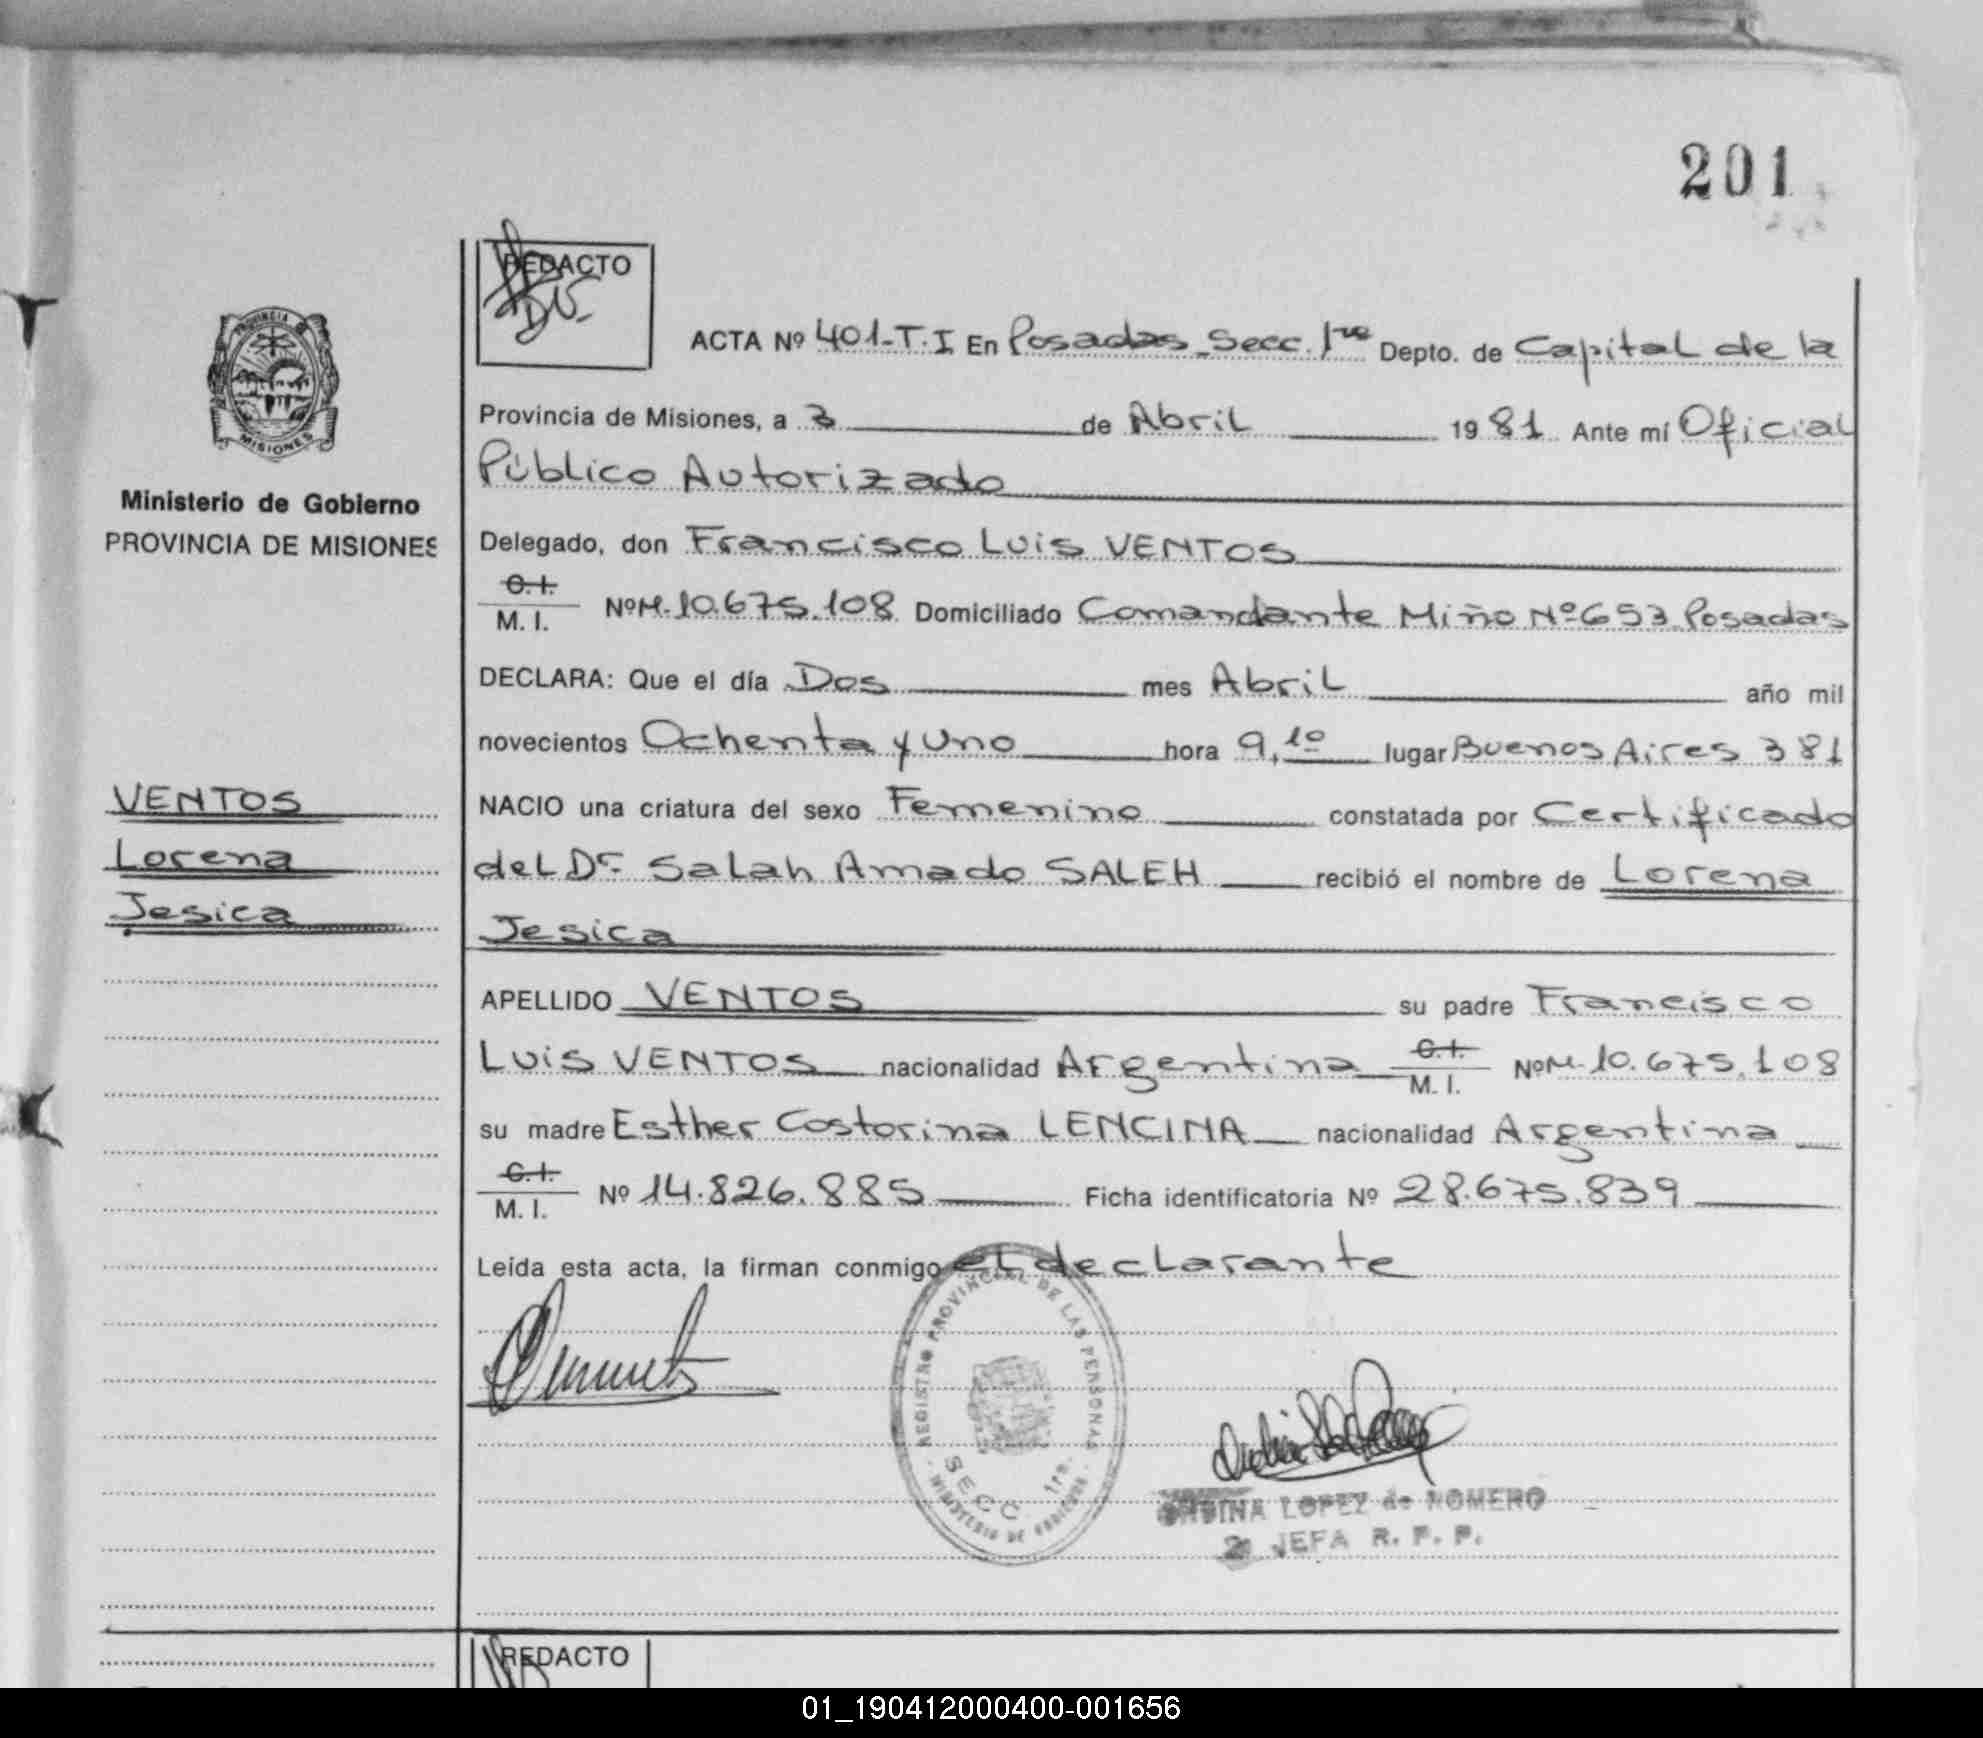 201
REDACTO
ACTA Nº 401-T.I En Posadas Secc. 1ra Depto. de Capital de la
PROVINCIA
MISIONES
Provincia de Misiones, a 3 de Abril 1981 Ante mí Oficial
Público Autorizado
Ministerio de Gobierno
PROVINCIA DE MISIONES
Delegado, don Francisco Luis VENTOS
C.I.
M.I. Nº M. 10.675.108 Domiciliado Comandante Miño Nº 653 Posadas
DECLARA: Que el día Dos mes Abril año mil
novecientos Ochenta y Uno hora 9,10 lugar Buenos Aires 381
VENTOS
Lorena
Jesica
NACIO una criatura del sexo Femenino constatada por Certificado
del Dr. Salah Amado SALEH recibió el nombre de Lorena
Jesica
APELLIDO VENTOS su padre Francisco
Luis VENTOS nacionalidad Argentina C.I. M.I. Nº M. 10.675.108
su madre Esther Costorina LENCINA nacionalidad Argentina
C.I.
M.I. Nº 14.826.885 Ficha identificatoria Nº 28.675.839
Leída esta acta, la firman conmigo el declarante
REGISTRO PROVINCIAL DE LAS PERSONAS
SECC. 1ra.
MINISTERIO DE GOBIERNO
LOPEZ de ROMERO
JEFA R. P. P.
REDACTO
01_190412000400-001656